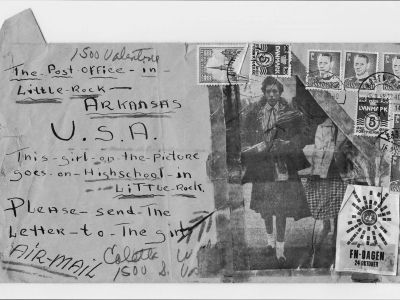 1500 Valentine
The-Post-Office-in-
Little-Rock-
ARKANSAS
U.S.A.
This-girl-on-the-Picture
goes-on-Highschool-in-
LiTTLe-Rock.
PLease-send-The
LeTTer-To-The girl
AiR-MAIL
1500 S.
DANMARK
FN-DAGEN
24 OKTOBER